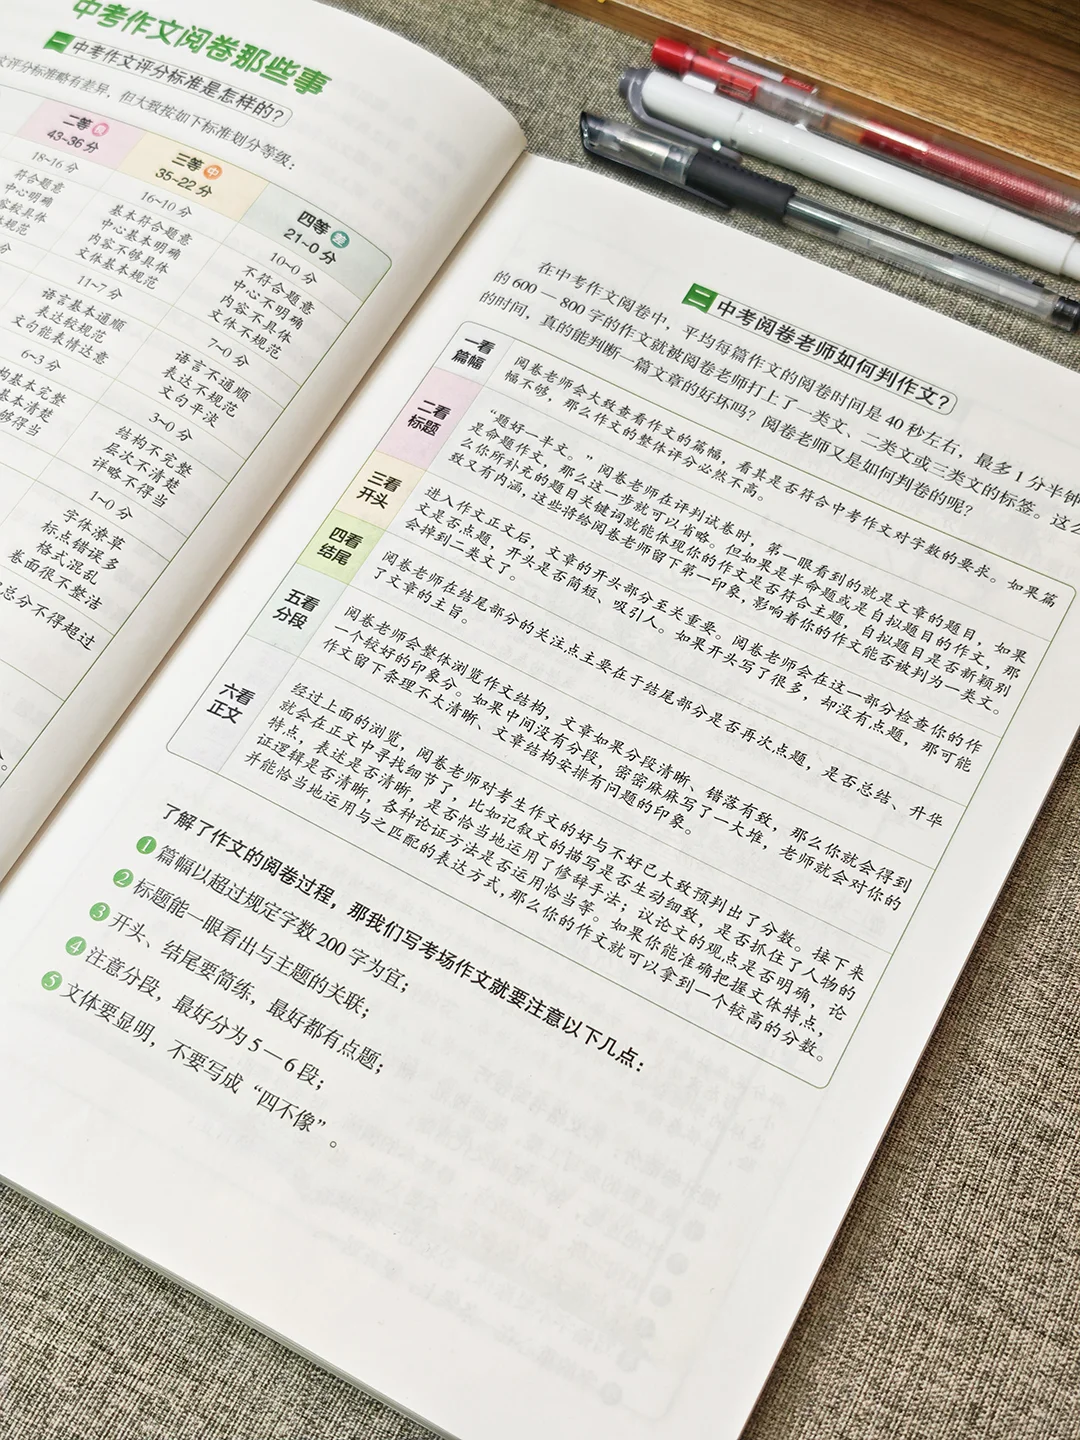 中考作文阅卷那些事
一 中考作文评分标准是怎样的？
评分标准略有差异，但大致按如下标准划分等级：
二等 良
43~36 分
三等 中
35~22 分
四等 差
21~0 分
18~16 分
符合题意
中心明确
容较具体
16~10 分
基本符合题意
中心基本明确
内容不够具体
文体基本规范
10~0 分
不符合题意
中心不明确
内容不具体
文体不规范
语言基本通顺
表达较规范
文句能表情达意
11~7 分
7~0 分
语言不通顺
表达不规范
文句平淡
6~3 分
构基本完整
基本清楚
够得当
3~0 分
结构不完整
层次不清楚
详略不得当
1~0 分
字体潦草
标点错误多
格式混乱
卷面很不整洁
总分不得超过
二 中考阅卷老师如何判作文？
在中考作文阅卷中，平均每篇作文的阅卷时间是 40 秒左右，最多 1 分半钟
的 600 — 800 字的作文就被阅卷老师打上了一类文、二类文或三类文的标签。这么
的时间，真的能判断一篇文章的好坏吗？阅卷老师又是如何判卷的呢？
一看
篇幅
阅卷老师会大致查看作文的篇幅，看其是否符合中考作文对字数的要求。如果篇
幅不够，那么作文的整体评分必然不高。
二看
标题
“题好一半文。”阅卷老师在评判试卷时，第一眼看到的就是文章的题目，如果
是命题作文，那么这一步就可以省略。但如果是半命题或是自拟题目的作文，那
么你所补充的题目关键词就能体现你的作文是否符合主题，自拟题目是否新颖别
致又有内涵，这些将给阅卷老师留下第一印象，影响着你的作文能否被判为一类文。
三看
开头
进入作文正文后，文章的开头部分至关重要。阅卷老师会在这一部分检查你的作
文是否点题，开头是否简短、吸引人。如果开头写了很多，却没有点题，那可能
会掉到二类文了。
四看
结尾
阅卷老师在结尾部分的关注点主要在于结尾部分是否再次点题，是否总结、升华
了文章的主旨。
五看
分段
阅卷老师会整体浏览作文结构，文章如果分段清晰、错落有致，那么你就会得到
一个较好的印象分。如果中间没有分段，密密麻麻写了一大堆，老师就会对你的
作文留下条理不太清晰、文章结构安排有问题的印象。
六看
正文
经过上面的浏览，阅卷老师对考生作文的好与不好已大致预判出了分数。接下来
就会在正文中寻找细节了，比如记叙文的描写是否生动细致，是否抓住了人物的
特点，表述是否清晰，是否恰当地运用了修辞手法；议论文的观点是否明确，论
证逻辑是否清晰，各种论证方法是否运用恰当等。如果你能准确把握文体特点，
并能恰当地运用与之匹配的表达方式，那么你的作文就可以拿到一个较高的分数。
了解了作文的阅卷过程，那我们写考场作文就要注意以下几点：
❶ 篇幅以超过规定字数 200 字为宜；
❷ 标题能一眼看出与主题的关联；
❸ 开头、结尾要简练，最好都有点题；
❹ 注意分段，最好分为 5 — 6 段；
❺ 文体要显明，不要写成“四不像”。